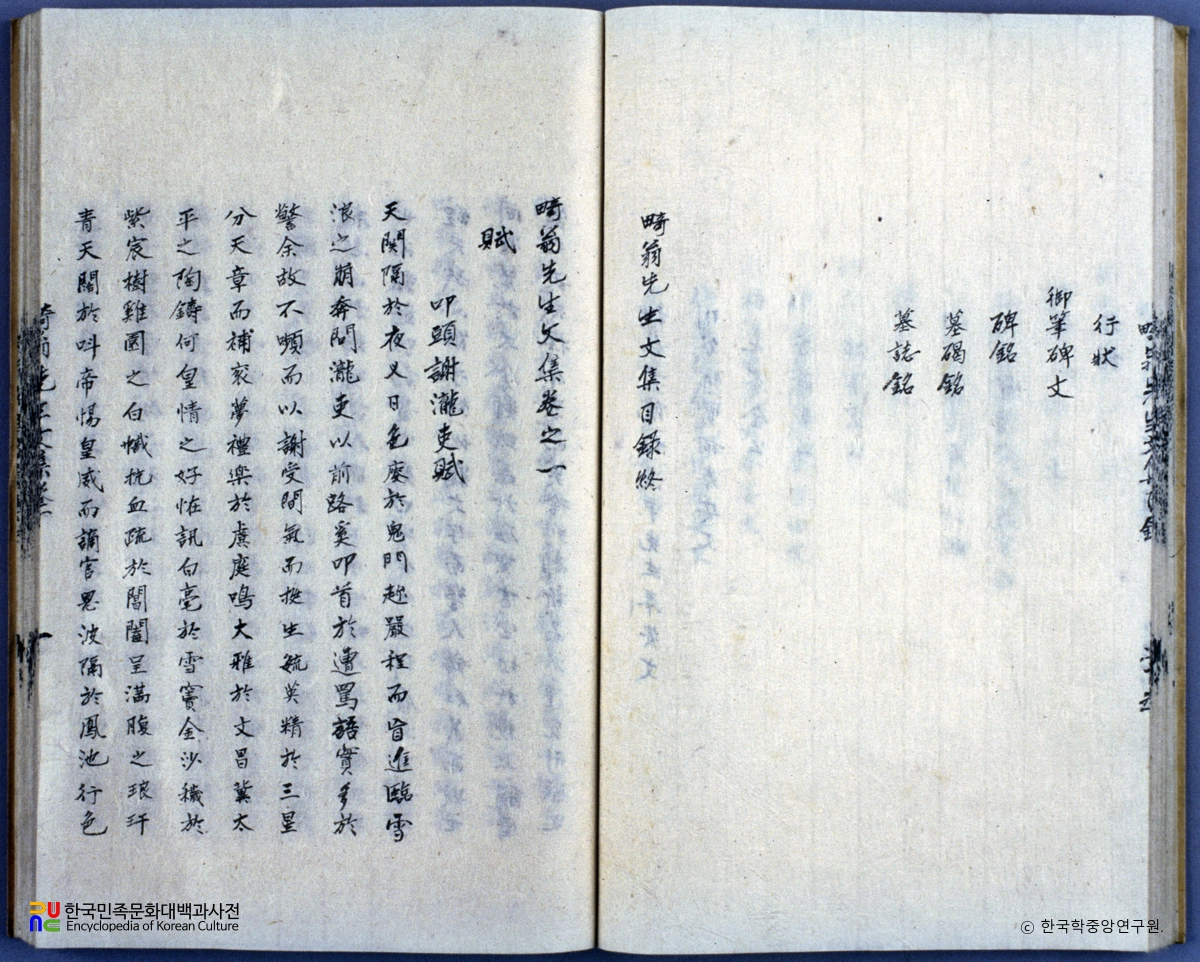 行狀
御筆碑文
碑銘
墓碣銘
墓誌銘
畸翁先生文集目錄終
畸翁先生文集卷之一
賦
叩頭謝瀧吏賦
天関隔於夜乂日色麼於鬼門趂嚴程而盲進臨雪
浪之崩奔問瀧吏以前路奚叩首於遭罵語實多於
警余故不嚬而以謝受間氣而挺生毓英精於三星
分天章而補衮夢禮樂於虞庭鳴大雅於文昌冀太
平之陶鑄何皇情之好恠訊白毫於雪竇金沙穢於
紫宸樹雞園之白幟抗血疏於閶闔呈滿腹之琅玕
青天闊於呌帝惕皇威而謫官恩波隔於鳳池行色
한국민족문화대백과사전
Encyclopedia of Korean Culture
ⓒ 한국학중앙연구원.